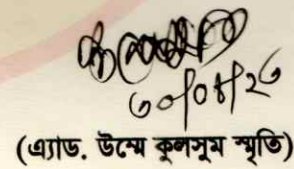 ৩০/০৪/২৩
(এ্যাড. উম্মে কুলসুম স্মৃতি)